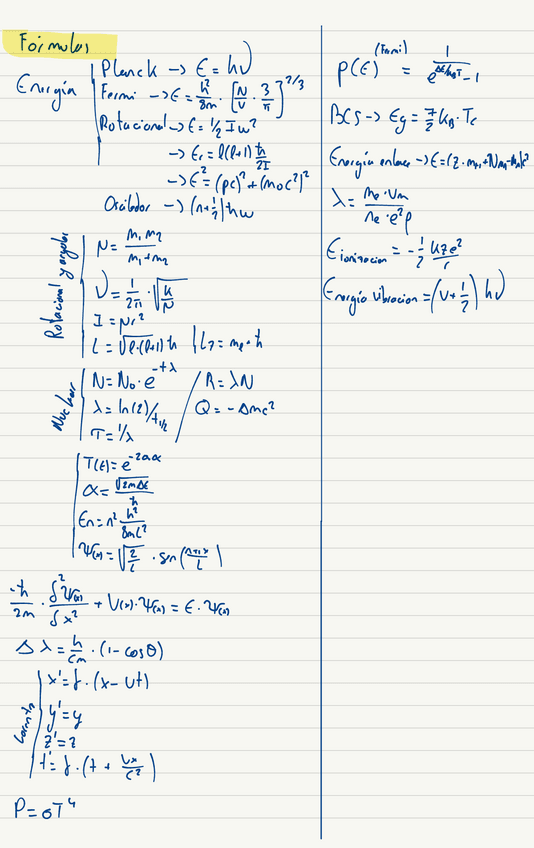 Fórmulas
Energía
Planck → E = hν
Fermi → E = h²/8m · [N/V · 3/π]^2/3
Rotacional → E = 1/2 I ω²
→ Er = l(l+1) ħ/2I
→ E² = (pc)² + (m₀c²)²
Oscilador → (n+1/2) ħω
Rotacional y angular
μ = m₁m₂/m₁+m₂
ν = 1/2π · √k/μ
I = μr²
L = √l·(l+1) ħ | Lz = me·ħ
Nuclear
N = N₀ · e^-tλ / R = λN
λ = ln(2)/t1/2 Q = -Δmc²
τ = 1/λ
T(E) = e^-2aα
α = √2mΔE/ħ
En = n² h²/8mL²
Ψ(x) = √2/L · sen(nπx/L)
-ħ/2m · δ²Ψ(x)/δx² + U(x)·Ψ(x) = E·Ψ(x)
Δλ = h/cm · (1-cosθ)
Lorentz
x' = γ·(x-vt)
y' = y
z' = z
t' = γ·(t + vx/c²)
P = σT⁴
(Fermi)
p(E) = 1/e^ΔE/kBT - 1
BCS → Eg = 7/2 kB·Tc
Energía enlace → E = (z·mp+
λ = me·vm/ne·e²ρ
Eionizacion = -1/2 kze²/r
Energía vibracion = (v+1/2) hν